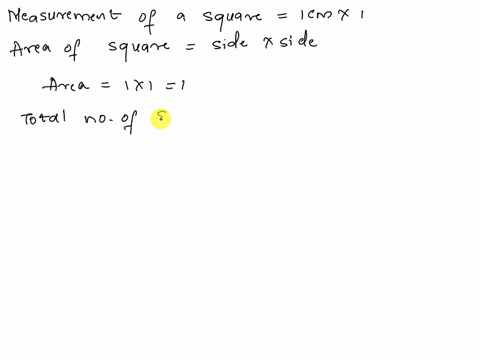 Measurement of a square = 1cm x 1
Area of square = side x side
Area = 1x1 = 1
Total no. of